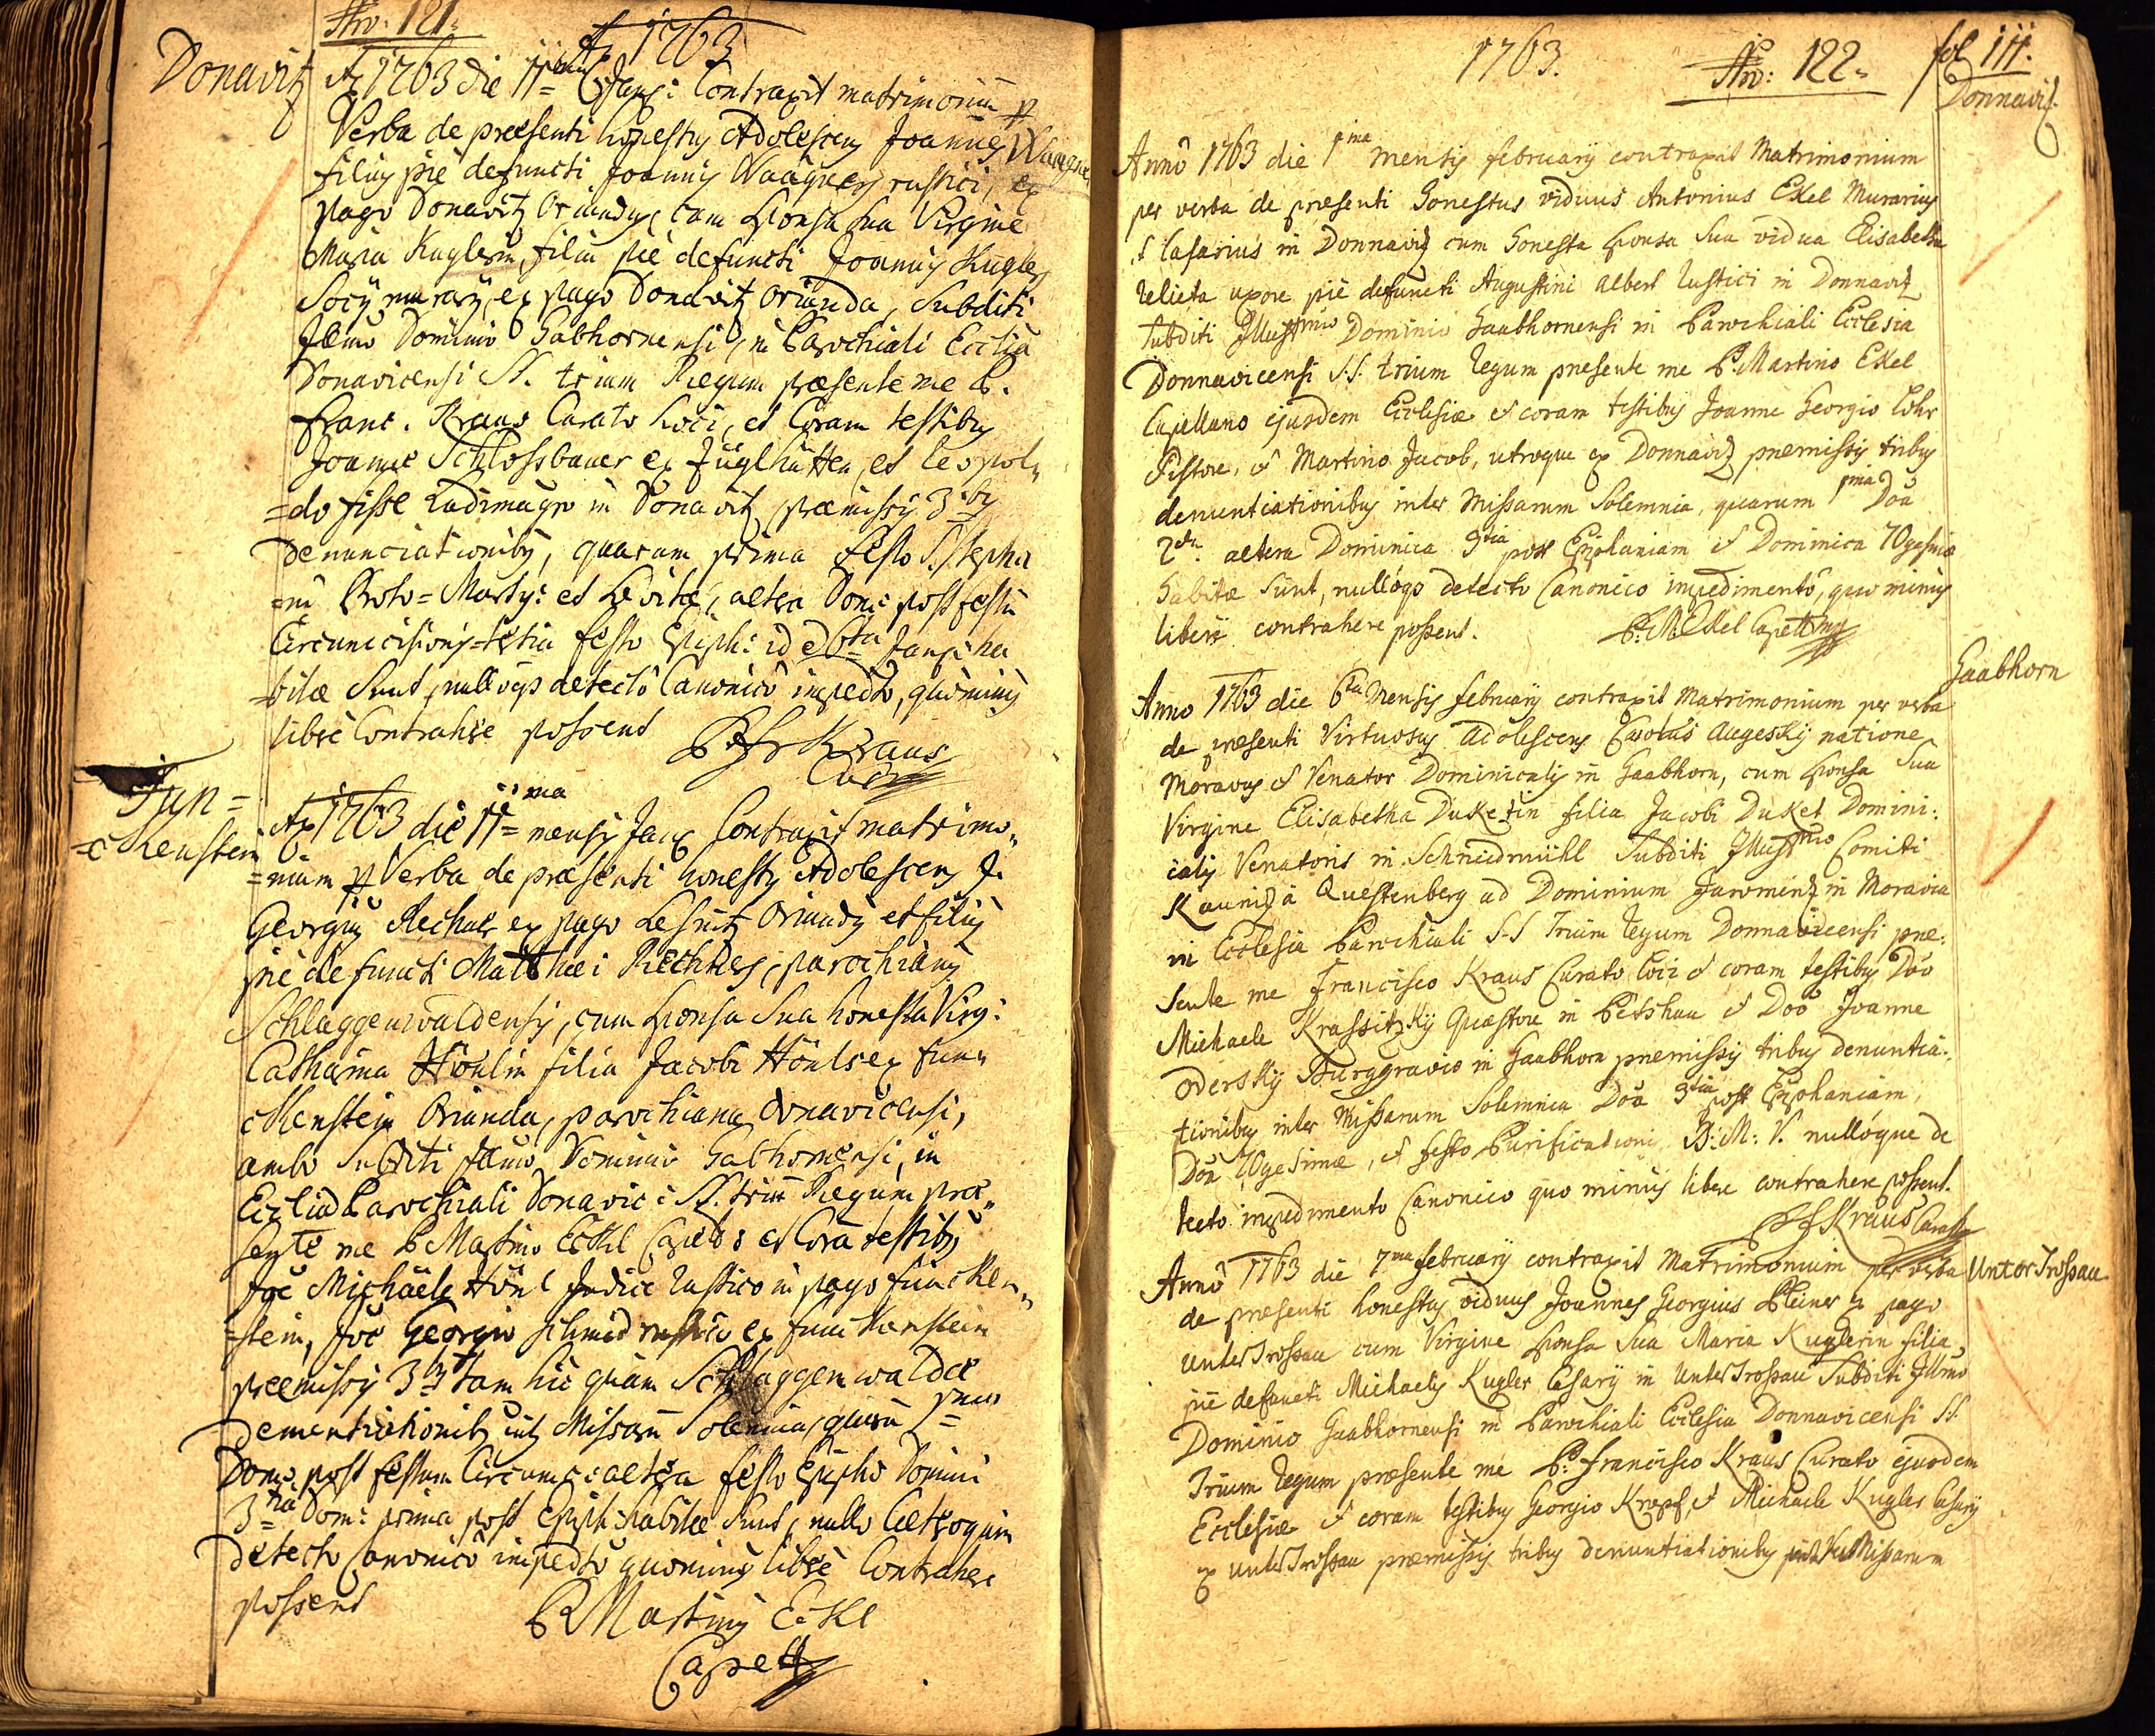 Str: 121.
Ao 1763
Donavitz
Ao 1763 die 11ma Janr: Contraxit matrimoniū p
Verba de præsenti honestus Adolescens Joannes Waagner
filius piè defuncti Joannis Waagners rustici, ex
pago Donavitz Oriundus, cum sponsa sua Virgine
Maria Kuglerin, filia piè defuncti Joannis Kugler
Socÿ murarÿ, ex pago Donavitz Orianda, Subditi
Illmo Dominio Gabhornensi, in Parochiali Ecclīa
Donavicensi SS. trium Regum præsente me P.
Franc. Kraus Curato Loci, et Coram testibus
Joanne Schlossbauer ex et Leopol=
=do Ludimagro in Donavitz præmissis 3bus
Denunciationibus, quarum prima festo S. Stepha
=ni Proto=Martyr: et Levitæ, altera Dom: post festū
Circumcisionis tertia festo Epiph: id e 6ta Janr: ha
=bitæ Sunt, nullóqs detectô Canonicô impedto, quôminus
liberè Contrahere possent P Fr Kraus
Cur
Fun=
=ckenstein
Ao 1763 die 11ma mensis Janr Contraxit matrimo=
=nium p Verba de præsenti honestus Adolescens J.
Georgius Rechnes ex pago Lesnitz Oriundus et filius
piè defuncti Matthæi Rechnes, parochianus
Schlaggenwaldensis, cum sponsa Sua honesta Virg:
Catharina Hönlin filia Jacobi Hönls ex Fun=
ckenstein Orianda, parochiana Donavicensi,
ambo Subditi Illmo Dominio Gabhornensi, in
Ecclīa Parochiali Donavic: SS. triū Regum præ=
sente me P Martino Eckl Capel: et Corā testibus
Joē Michäele Hönl Judice rustico in pago Funcken=
=stein, Joē Georgio Schmid rustico ex Funckenstein
præmissis 3bus tam hic quam Schlaggenwaldæ
Denuntiationibus int Missarū Solemnia, quarū 1ma
Dom: post festum Circumc: altera festo Epiph: Domini
3tia Dom: prima post Epiph: habitæ Sunt, nullo
detecto Canonicô impedto quominus liberè Contrahere
possent
P Martinus Eckl
Capell
1763.
No
Str: 122.
fol 111.
Donnavitz
Annô 1763 die 1ma mensis februarÿ contraxit Matrimonium
per verba de præsenti Honestus viduus Antonius Ekel Murarius
et Casarius in Donnavitz cum Honesta sponsa Sua vidua Elisabetha
relicta uxore piè defuncti Augustini Albert Rustici in Donnavitz
Subditi Illustrmo Dominio Gaabhornensi in Parochiali Ecclesia
Donnavicensi S.S. trium Regum presente me P: Martino Ekel
Capellano ejusdem Ecclesiæ et coram testibus Joanne Georgio Löhr
Pistore, et Martino Jacob, utroque ex Donnavitz premissis tribus
denuntiationibus inter Missarum Solemnia, quarum 1ma Doā
2da altera Dominica 3tia post Epiphaniam et Dominica 70gesimæ
Habitæ Sunt, nullóqs detecto Canonico impedimentô, quo minus
liberè contrahere possent. P: M: Ekel Capellanus
Gaabhorn
Anno 1763 die 6ta Mensis februarÿ contraxit Matrimonium per verba
de præsenti Virtuosus adolescens Carolus Augeskÿ natione
Moravus et Venator Dominicalis in Gaabhorn, cum sponsa Sua
Virgine Elisabetha Duketin filia Jacobi Duket Domini:
calis Venatoris in Schneidmühl Subditi Illustrmo Comiti
Kaunitz à Questenberg ad Dominium Jarominz in Moravia
in Ecclesia Parochiali S.S Trium Regum Donnavicensi pre:
sente me Francisco Kraus Curato Loci et coram testibus Dōo
Michaele Krassitzkÿ Quæstore in Petshau et Doō Joanne
Oderskÿ Burggravio in Gaabhorn premissis tribus denuntia:
tionibus inter Missarum Solemnia Doā 3tia post Epiphaniam,
Doā 70gesimæ, et festo Purificationis B: M: V. nullóque de
tecto impedimento Canonico quo minus libere contrahere possent.
P F Kraus Curatus
Unter Trossau
Annô 1763 die 7ma februarÿ contraxit Matrimonium per verba
de præsenti honestus viduus Joannes Georgius Pleiner ex pago
UnterTrossau cum Virgine sponsa Sua Maria Kuglerin filia
piè defuncti Michaelis Kugler Casarÿ in UnterTrossau Subditi Illmo
Dominio Gaabhornensi in Parochiali Ecclesia Donnavicensi S.S.
Trium Regum præsente me P: Francisco Kraus Curato ejusdem
Ecclesiæ et coram testibus Georgio Kropf, et Michaele Kugler Casarÿ
ex UnterTrossau præmissis tribus denuntiationibus inter Missarum